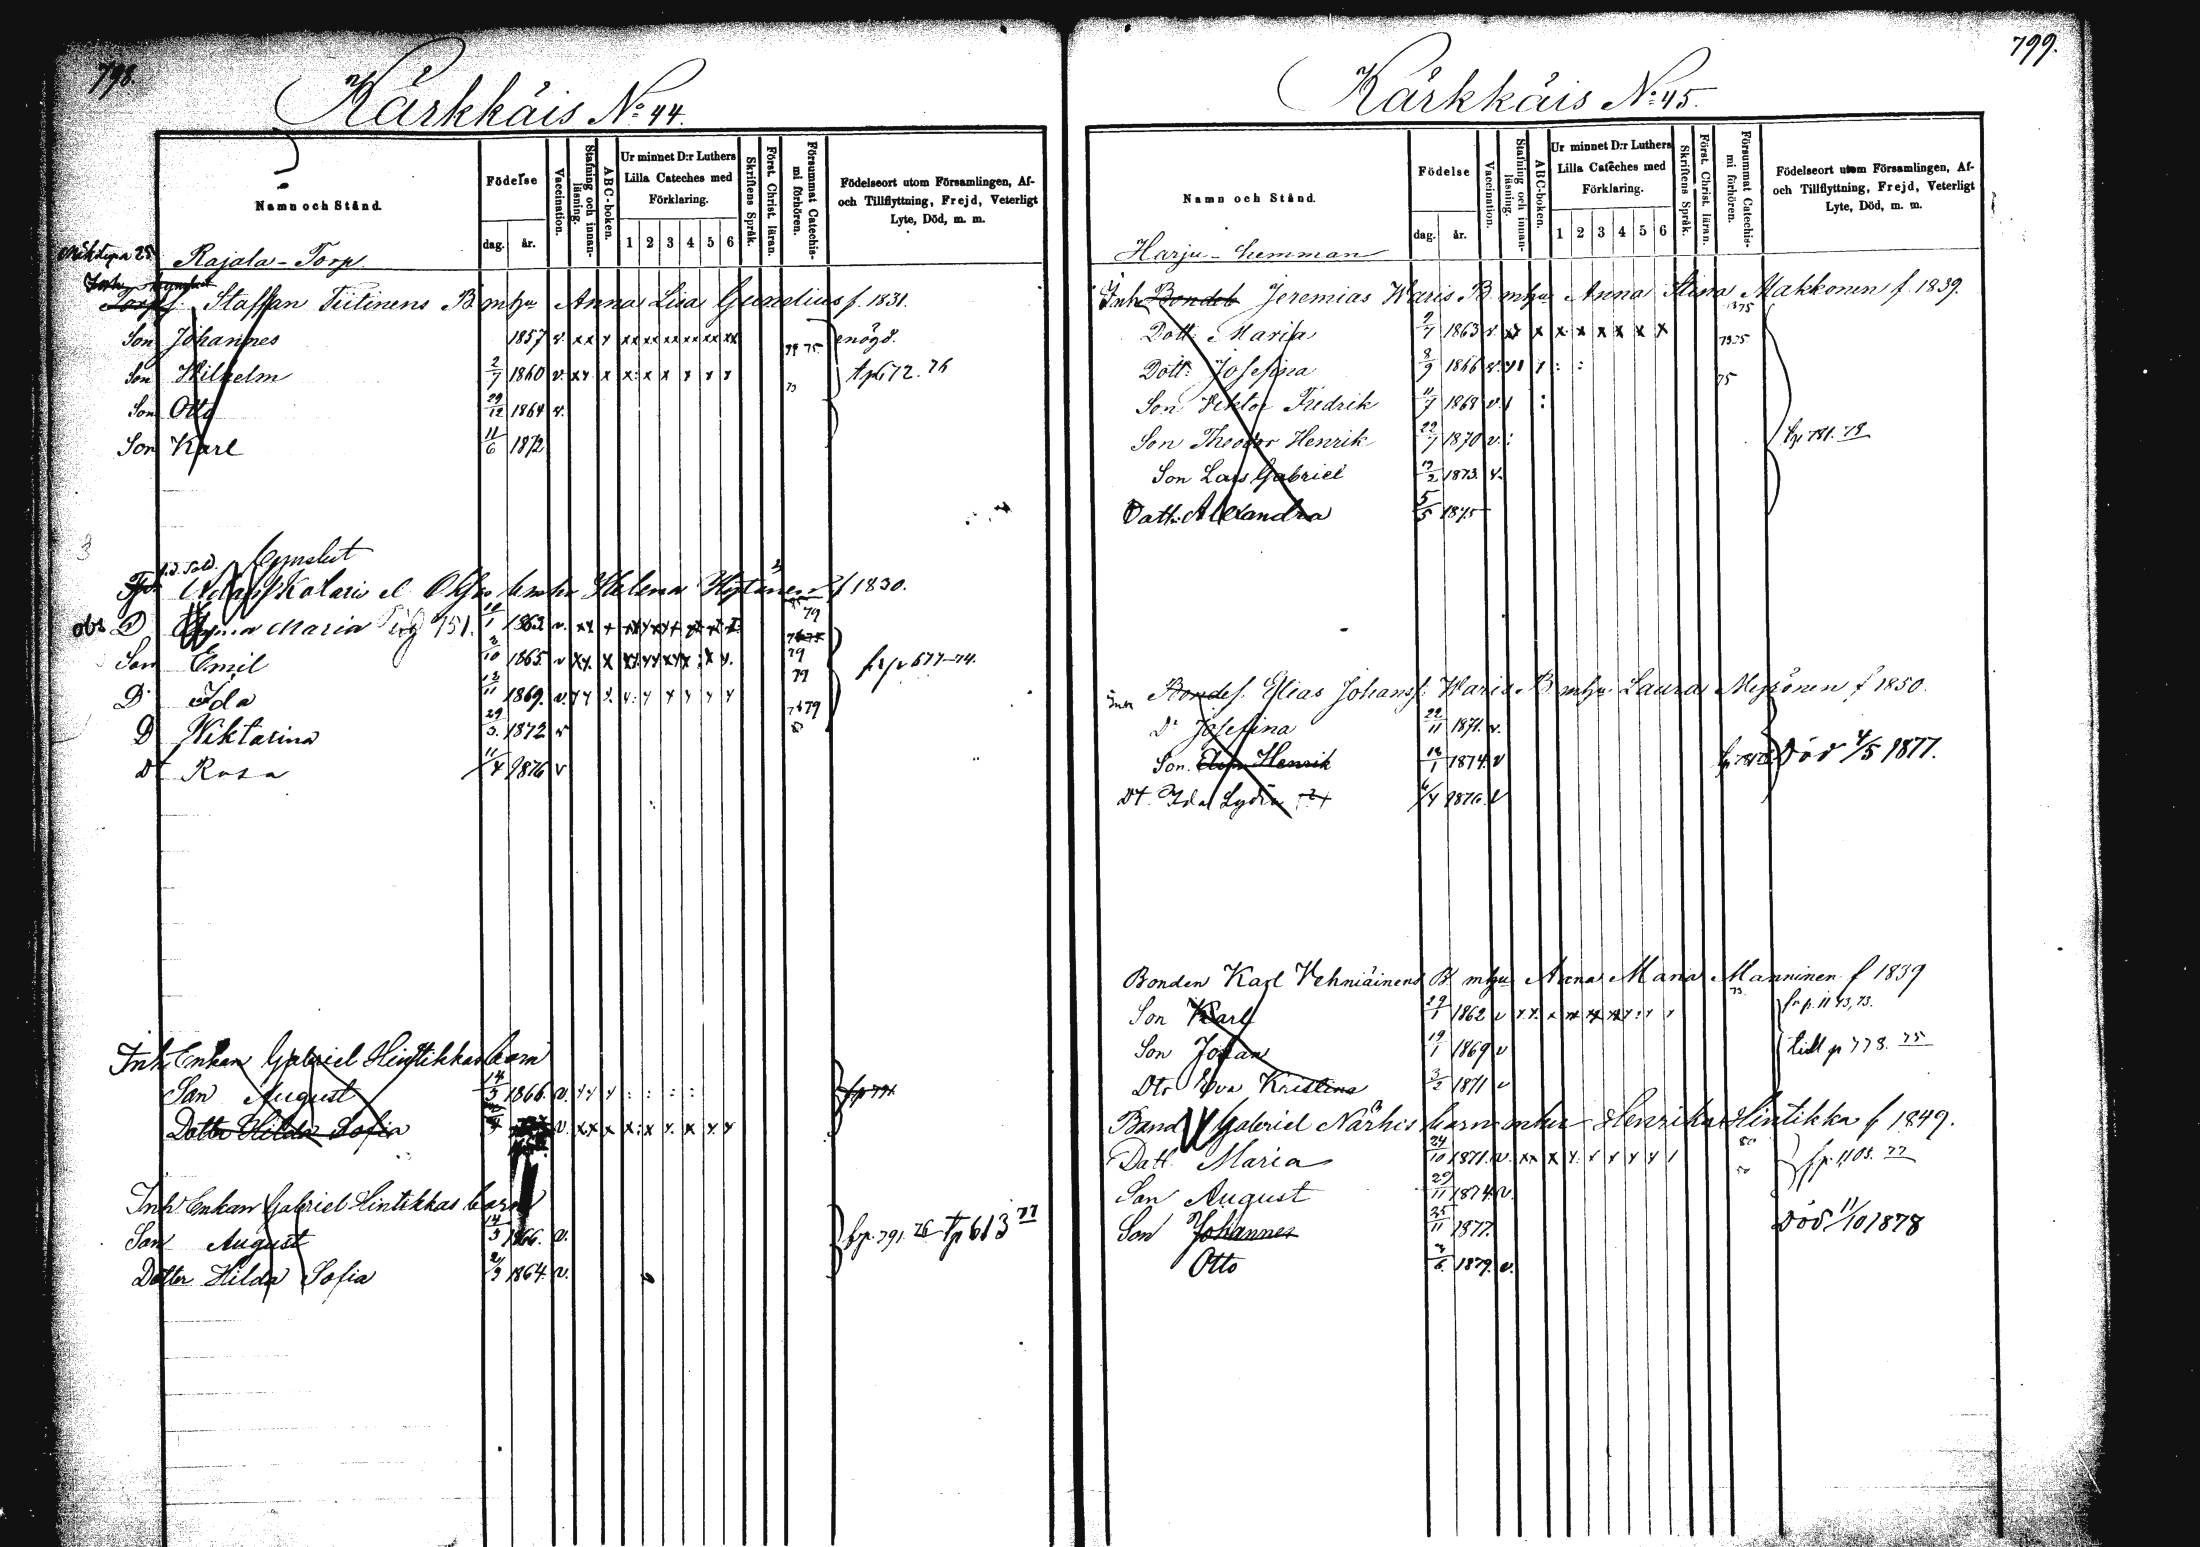 798.
Kärkkäis No 44.
Namn och Stånd.
Födelse
dag. år.
Vaccination.
Stafning och innan-läsning.
ABC-boken.
Ur minnet D:r Luthers Lilla Cateches med Förklaring.
1 2 3 4 5 6
Skriftens Språk.
Först. Christ. läran.
Försummat Catechismi förhören.
Födelseort utom Församlingen, Af- och Tillflyttning, Frejd, Veterligt Lyte, Död, m. m.
Rajala-Torp.
Staffan Tiitinens B mhu Anna Lisa Gunelius f. 1831.
Son Johannes 1857 v. enögd.
Son Wilhelm 2/7 1860 v. tp 672. 76
Son Otto 29/12 1864 v.
Son Karl 11/6 1872
Adam Kolari mhu Helena f 1830.
obs D Anna Maria 1 1863 v. 79
Son Emil 2/10 1865 v 79 fr p 677-74.
D Ida 12/11 1869. v. 79
D Wiktarina 29/3 1872 v
Dr Rosa 11/4 1876 v
Inh Enkan Gabriel Hintikkas barn
Son August 14/3 1866. v.
Dotter Hilda Sofia v.
Inh Enkan Gabriel Hintikkas barn
Son August 14/3 1866. v. fp. 791. 76 tp 613 77
Dotter Hilda Sofia 1864. v.
799.
Kärkkäis No 45.
Namn och Stånd.
Födelse
dag. år.
Vaccination.
Stafning och innan-läsning.
ABC-boken.
Ur minnet D:r Luthers Lilla Cateches med Förklaring.
1 2 3 4 5 6
Skriftens Språk.
Först. Christ. läran.
Försummat Catechismi förhören.
Födelseort utom Församlingen, Af- och Tillflyttning, Frejd, Veterligt Lyte, Död, m. m.
Harju-hemman
Inh Jeremias Waris B mhu Anna Stina Makkonen f. 1839.
Dott: Maria 1863 v
Dott: Josefina 8/9 1866 v. 75
Son Viktor Fredrik 11/7 1868 v.
Son Theodor Henrik 22/7 1870 v.
Son Lars Gabriel 19/2 1873. v.
Datt: Alexandra 5/5 1875
Bondes. Elias Johanss. Waris B mhu Laura f 1850.
Dr Josefina 22/11 1871. v.
Son Henrik 1874 v Död 4/5 1877.
Dt. Ida Lydia 1876. v
Bonden Karl Vehniäinens B mhu Anna Maria Manninen f 1839
Son Karl 29/1 1862 v
Son Johan 19/1 1869 v till p 778. 75
Dtr Eva Kristina 3/2 1871 v
Band Gabriel Närhis barn mhu Henrika Hintikka f 1849.
Datt Maria 24/10 1871. v. 80
Son August 29/11 1874 v.
Son Johannes 25/11 1877. Död 11/10 1878
Otto 1879. v.